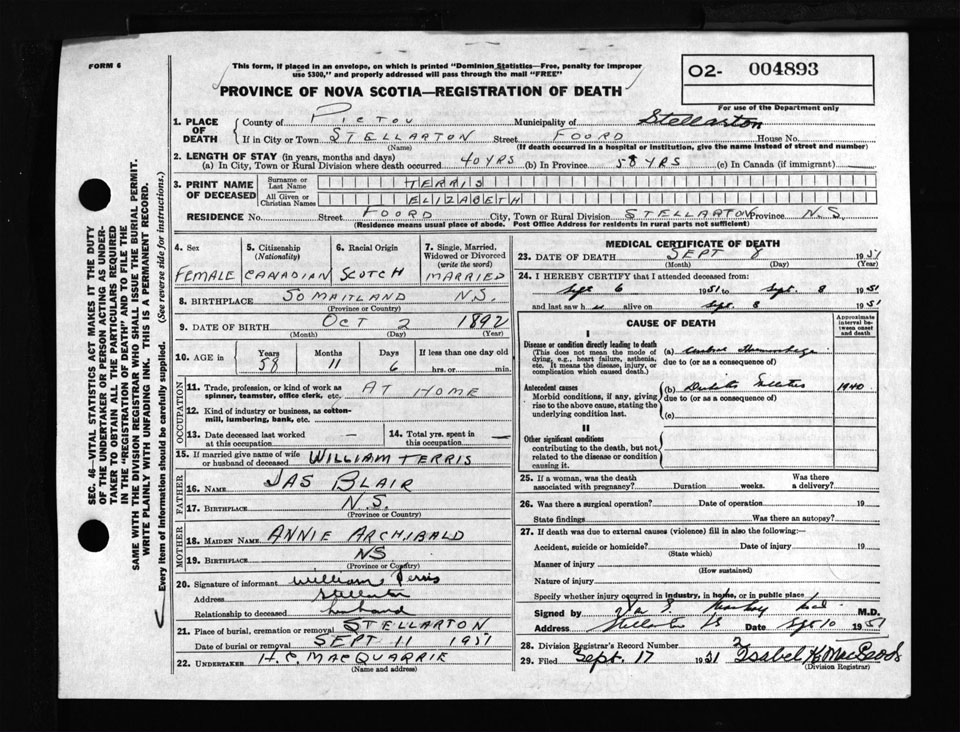 FORM 6
This form, if placed in an envelope, on which is printed "Dominion Statistics—Free, penalty for improper
use $300," and properly addressed will pass through the mail "FREE"
O2- 004893
PROVINCE OF NOVA SCOTIA—REGISTRATION OF DEATH
For use of the Department only
1. PLACE OF DEATH
County of PICTOU Municipality of Stellarton
If in City or Town STELLARTON Street FOORD House No.
(Name) (If death occurred in a hospital or institution, give the name instead of street and number)
2. LENGTH OF STAY (in years, months and days)
(a) In City, Town or Rural Division where death occurred 40 YRS (b) In Province 58 YRS (c) In Canada (if immigrant)
3. PRINT NAME OF DECEASED
Surname or Last Name TERRIS
All Given or Christian Names ELIZABETH
RESIDENCE No. Street FOORD City, Town or Rural Division STELLARTON Province N.S.
(Residence means usual place of abode. Post Office Address for residents in rural parts not sufficient)
4. Sex
FEMALE
5. Citizenship (Nationality)
CANADIAN
6. Racial Origin
SCOTCH
7. Single, Married, Widowed or Divorced (write the word)
MARRIED
8. BIRTHPLACE SO MAITLAND N.S.
(Province or Country)
9. DATE OF BIRTH OCT 2 1892
(Month) (Day) (Year)
10. AGE in Years Months Days If less than one day old
58 11 6 hrs. or min.
OCCUPATION
11. Trade, profession, or kind of work as
spinner, teamster, office clerk, etc. AT HOME
12. Kind of industry or business, as cotton-
mill, lumbering, bank, etc.
13. Date deceased last worked
at this occupation —
14. Total yrs. spent in
this occupation —
15. If married give name of wife
or husband of deceased WILLIAM TERRIS
FATHER
16. NAME JAS BLAIR
17. BIRTHPLACE N.S.
(Province or Country)
MOTHER
18. MAIDEN NAME ANNIE ARCHIBALD
19. BIRTHPLACE NS
(Province or Country)
20. Signature of informant William Terris
Address Stellarton
Relationship to deceased husband
21. Place of burial, cremation or removal STELLARTON
Date of burial or removal SEPT 11 1951
22. UNDERTAKER H.C. MACQUARRIE
(Name and address)
MEDICAL CERTIFICATE OF DEATH
23. DATE OF DEATH SEPT 8 1951
(Month) (Day) (Year)
24. I HEREBY CERTIFY that I attended deceased from:
Sept 6 1951 to Sept. 8 1951
and last saw h alive on Sept. 8 1951
CAUSE OF DEATH
Approximate interval between onset and death
I
Disease or condition directly leading to death
(This does not mean the mode of
dying, e.g., heart failure, asthenia,
etc. It means the disease, injury, or
complication which caused death.)
(a) Cerebral Hemorrhage
due to (or as a consequence of)
Antecedent causes
Morbid conditions, if any, giving
rise to the above cause, stating the
underlying condition last.
(b) Diabetes Mellitus 1940
due to (or as a consequence of)
(c)
II
Other significant conditions
contributing to the death, but not
related to the disease or condition
causing it.
25. If a woman, was the death
associated with pregnancy? Duration weeks. Was there a delivery?
26. Was there a surgical operation? Date of operation 19
State findings Was there an autopsy?
27. If death was due to external causes (violence) fill in also the following:—
Accident, suicide or homicide? Date of injury 19
(State which)
Manner of injury
(How sustained)
Nature of injury
Specify whether injury occurred in industry, in home, or in public place
Signed by M.D.
Address Stellarton NS Date Sept 10 1951
28. Division Registrar's Record Number
29. Filed Sept. 17 1951 Isabel K. MacLeod
(Division Registrar)
SEC. 46—VITAL STATISTICS ACT MAKES IT THE DUTY
OF THE UNDERTAKER OR PERSON ACTING AS UNDER-
TAKER TO OBTAIN ALL THE PARTICULARS REQUIRED
IN THE "REGISTRATION OF DEATH" AND TO FILE THE
SAME WITH THE DIVISION REGISTRAR WHO SHALL ISSUE THE BURIAL PERMIT.
WRITE PLAINLY WITH UNFADING INK. THIS IS A PERMANENT RECORD.
Every item of Information should be carefully supplied. (See reverse side for instructions.)